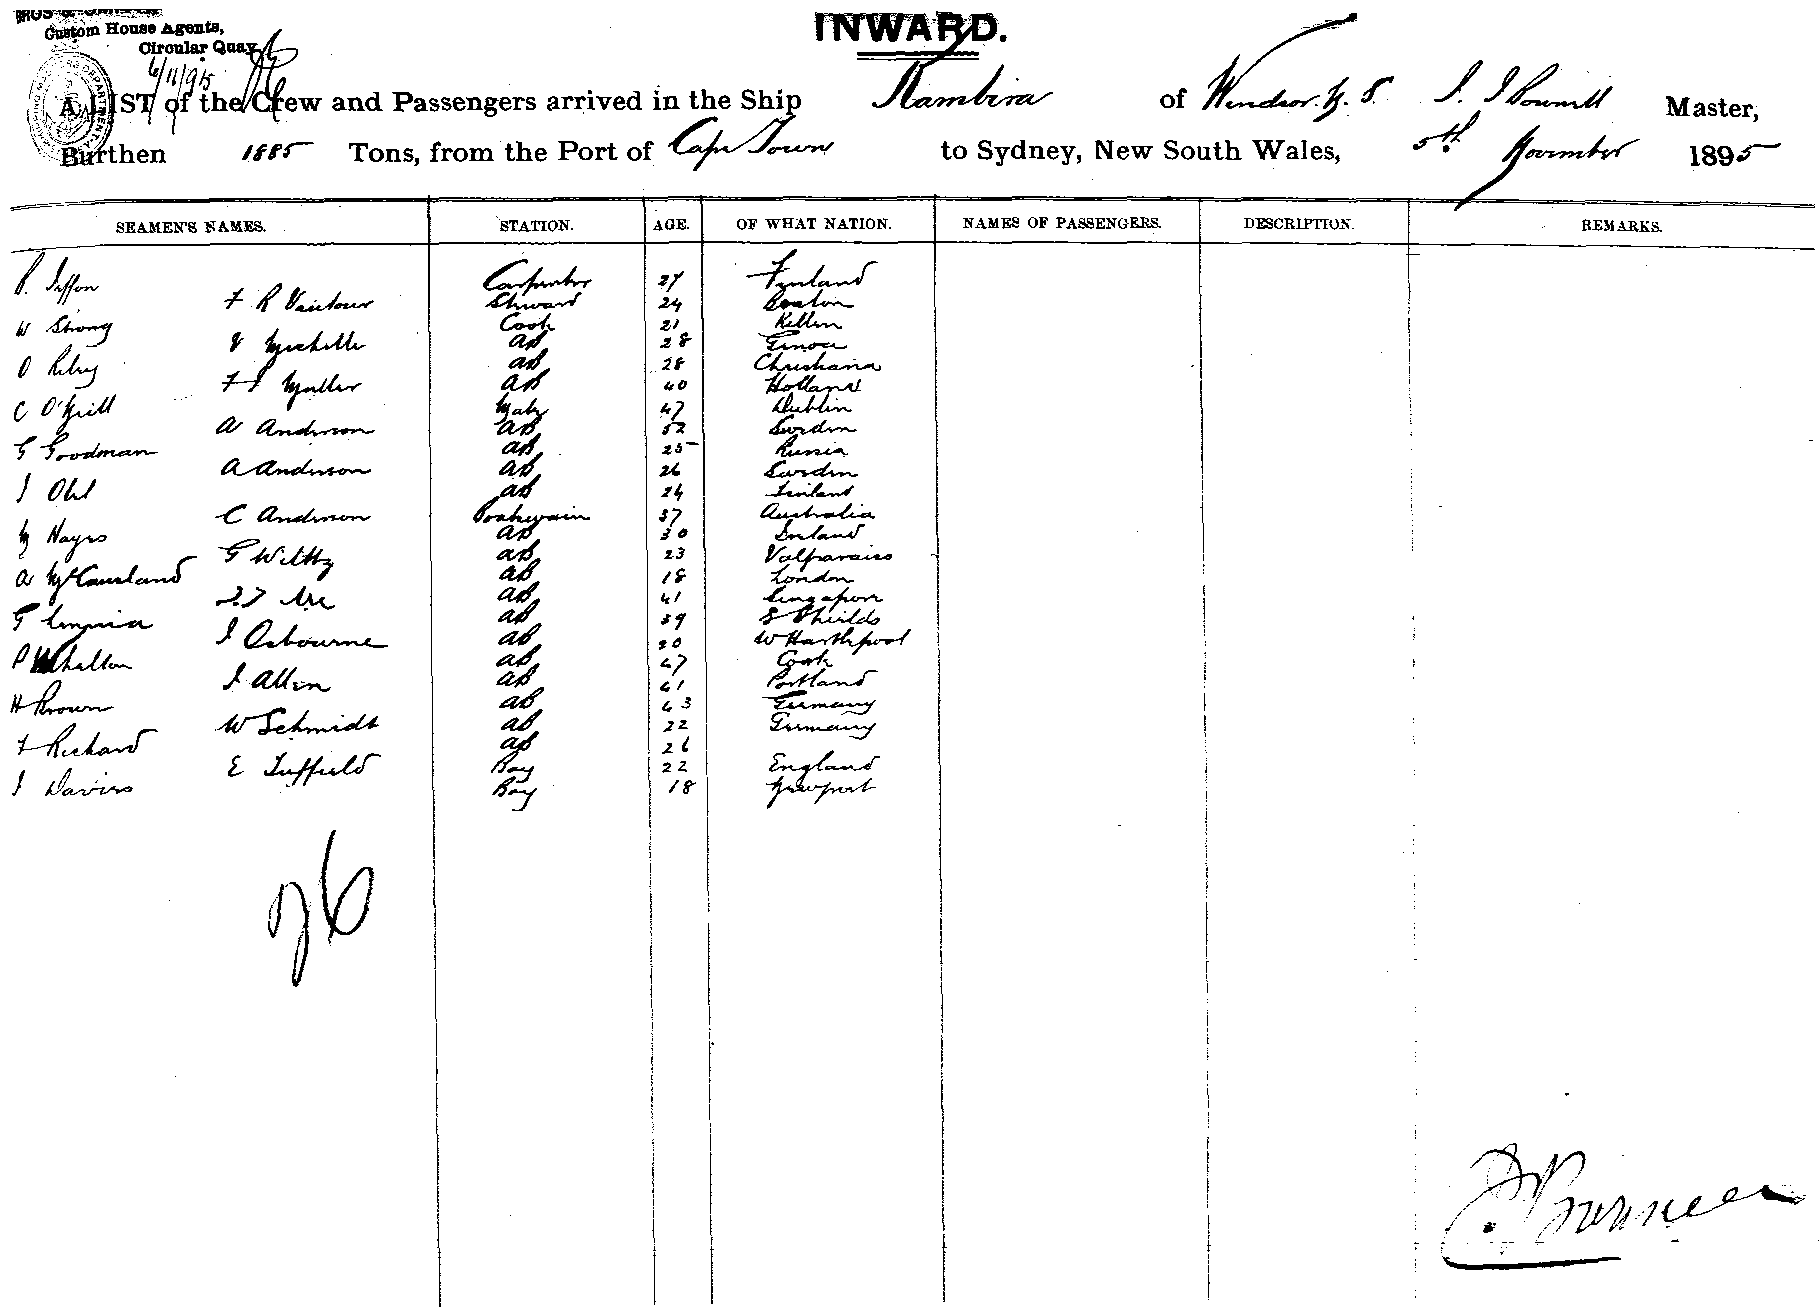 Custom House Agents,
Circular Quay
6/11/95
INWARD.
A LIST of the Crew and Passengers arrived in the Ship Kambira of Windsor N. S. Master,
Burthen 1885 Tons, from the Port of Cape Town to Sydney, New South Wales, 5th November 1895
SEAMEN'S NAMES. STATION. AGE. OF WHAT NATION. NAMES OF PASSENGERS. DESCRIPTION. REMARKS.
Carpenter 27 Finland
F R Vautour Steward 24 Boston
W Strong Cook 21
AB 28 Genoa
O Riley AB 28 Christiana
AB 40 Holland
C O'Neill Mate 47 Dublin
A Anderson AB 52 Sweden
G Goodman AB 25 Russia
A Anderson AB 26 Sweden
J Ohl AB 24 Finland
C Anderson Boatswain 37 Australia
M Hayes AB 30 Ireland
G AB 23 Valparaiso
A McCausland AB 18 London
AB 41 Singapore
G AB 39 S Shields
J Osbourne AB 20 W Hartlepool
P Whelton AB 47 Cork
J Allen AB 41 Portland
H Brown AB 43 Germany
W Schmidt AB 22 Germany
F Richard AB 26
E Tuffield Boy 22 England
J Davies Boy 18 Newport
26